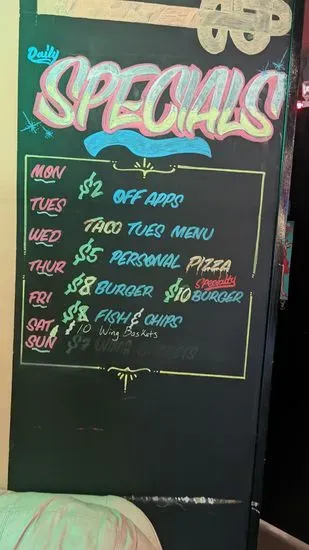 Daily
SPECIALS
MON $2 OFF APPS
TUES TACO TUES MENU
WED $5 PERSONAL PIZZA
THUR $8 BURGER $10 Specialty BURGER
FRI $8 FISH & CHIPS
SAT & $10 Wing Baskets
SUN $7 WING BASKETS